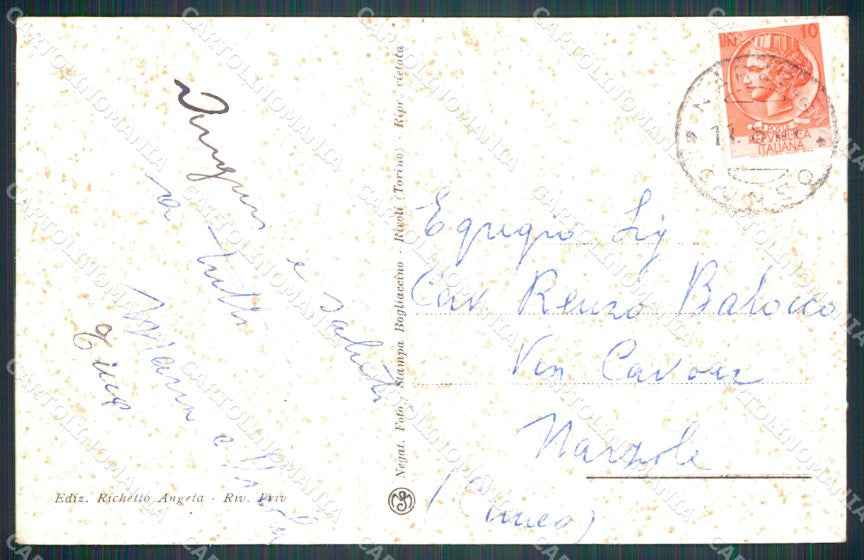 Auguri e saluti
a tutti
Tino
Ediz. Richetto Angela - Riv. Priv
Negat. Foto Stampa Bogliaccino - Rivoli (Torino) Ripr. vietata
10
REPVBBLICA
ITALIANA
Egregio Sig
Cav Renzo Balocco
Via Cavour
Narzole
(Cuneo)
CARTOLINOMANIA